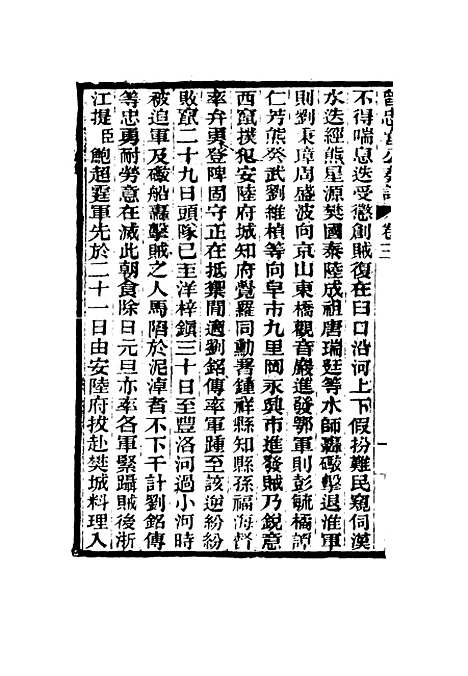 不得喘息迭受懲創賊復在臼口沿河上下假扮難民窺伺漢
水迭經熊星源樊國泰陸成祖唐瑞廷等水師轟礮擊退淮軍
則劉秉璋周盛波向京山東橋觀音巖進發鄂軍則彭毓橘譚
仁芳熊癸武劉維楨等向阜市九里岡永興市進發賊乃銳意
西竄撲犯安陸府城知府覺羅同勳署鍾祥縣知縣孫福海督
率弁勇登陴固守正在抵禦間適劉銘傳率軍踵至該逆紛紛
敗竄二十九日頭隊已至洋梓鎭三十日至豐洛河過小河時
被追軍及礮船轟擊賊之人馬陷於泥淖者不下千計劉銘傳
等忠勇耐勞意在滅此朝食除日元旦亦率各軍緊躡賊後浙
江提臣鮑超霆軍先於二十一日由安陸府拔赴樊城料理入
卷三